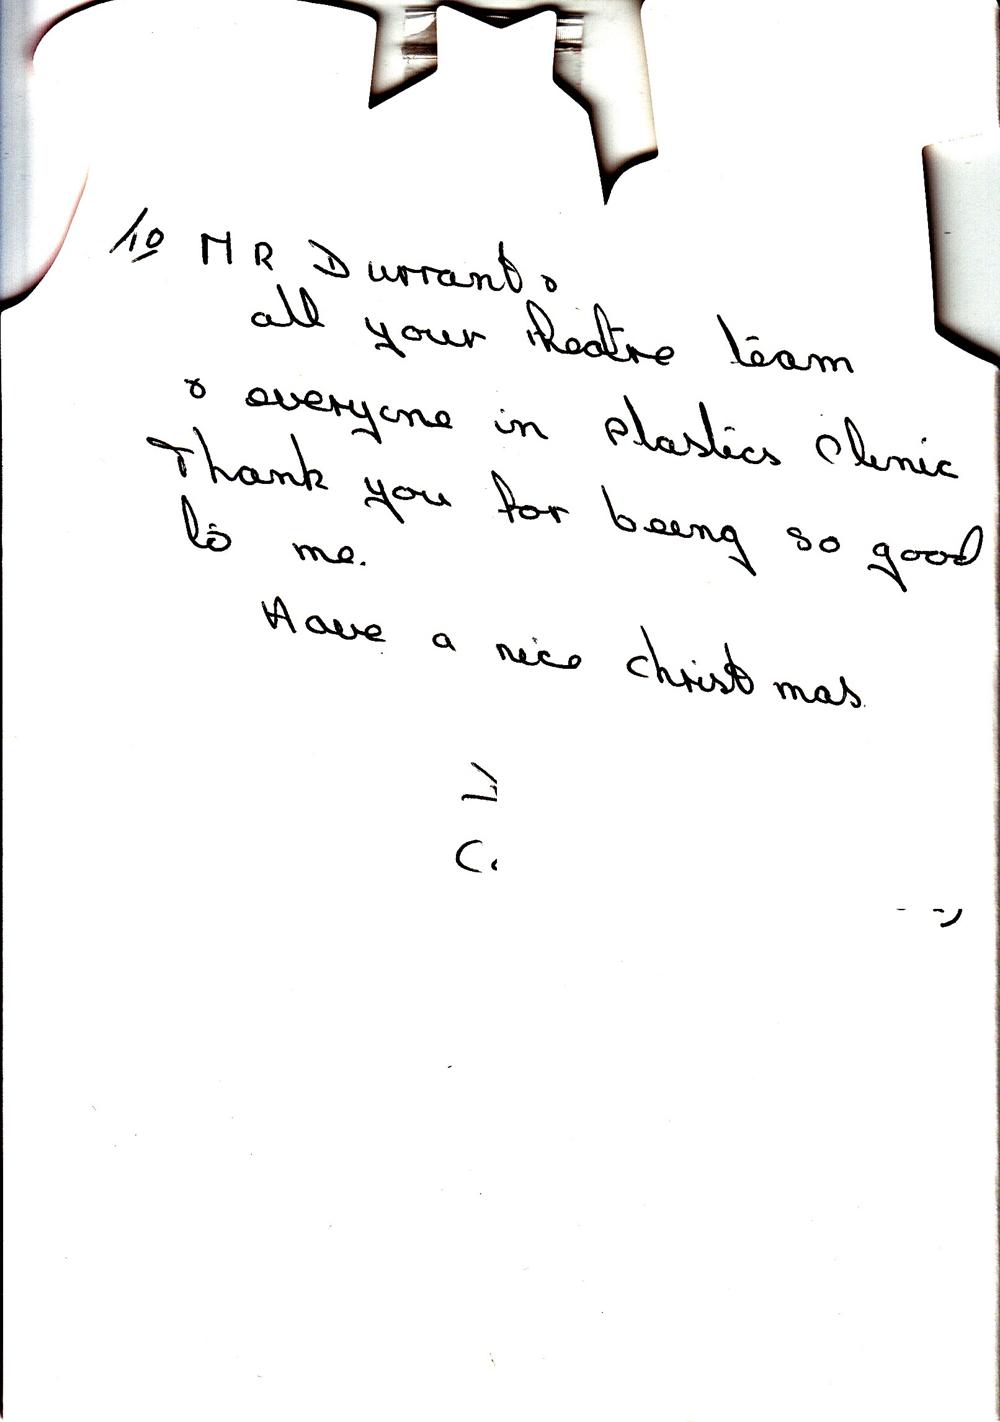 To MR Durrant &
all your theatre team
& everyone in plastics clinic
Thank you for being so good
to me.
Have a nice christmas.